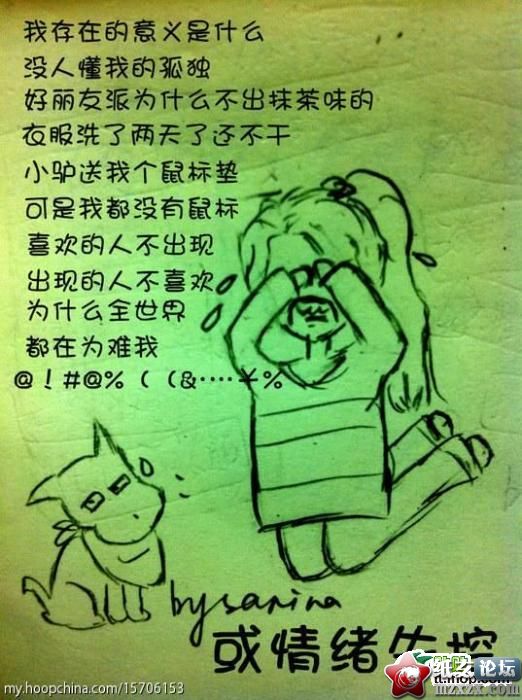 我存在的意义是什么
没人懂我的孤独
好丽友派为什么不出抹茶味的
衣服洗了两天了还不干
小驴送我个鼠标垫
可是我都没有鼠标
喜欢的人不出现
出现的人不喜欢
为什么全世界
都在为难我
@！#@%（（&……￥%
bysarina
或情绪失控
论坛
mzxzx.com
my.hoopchina.com/15706153